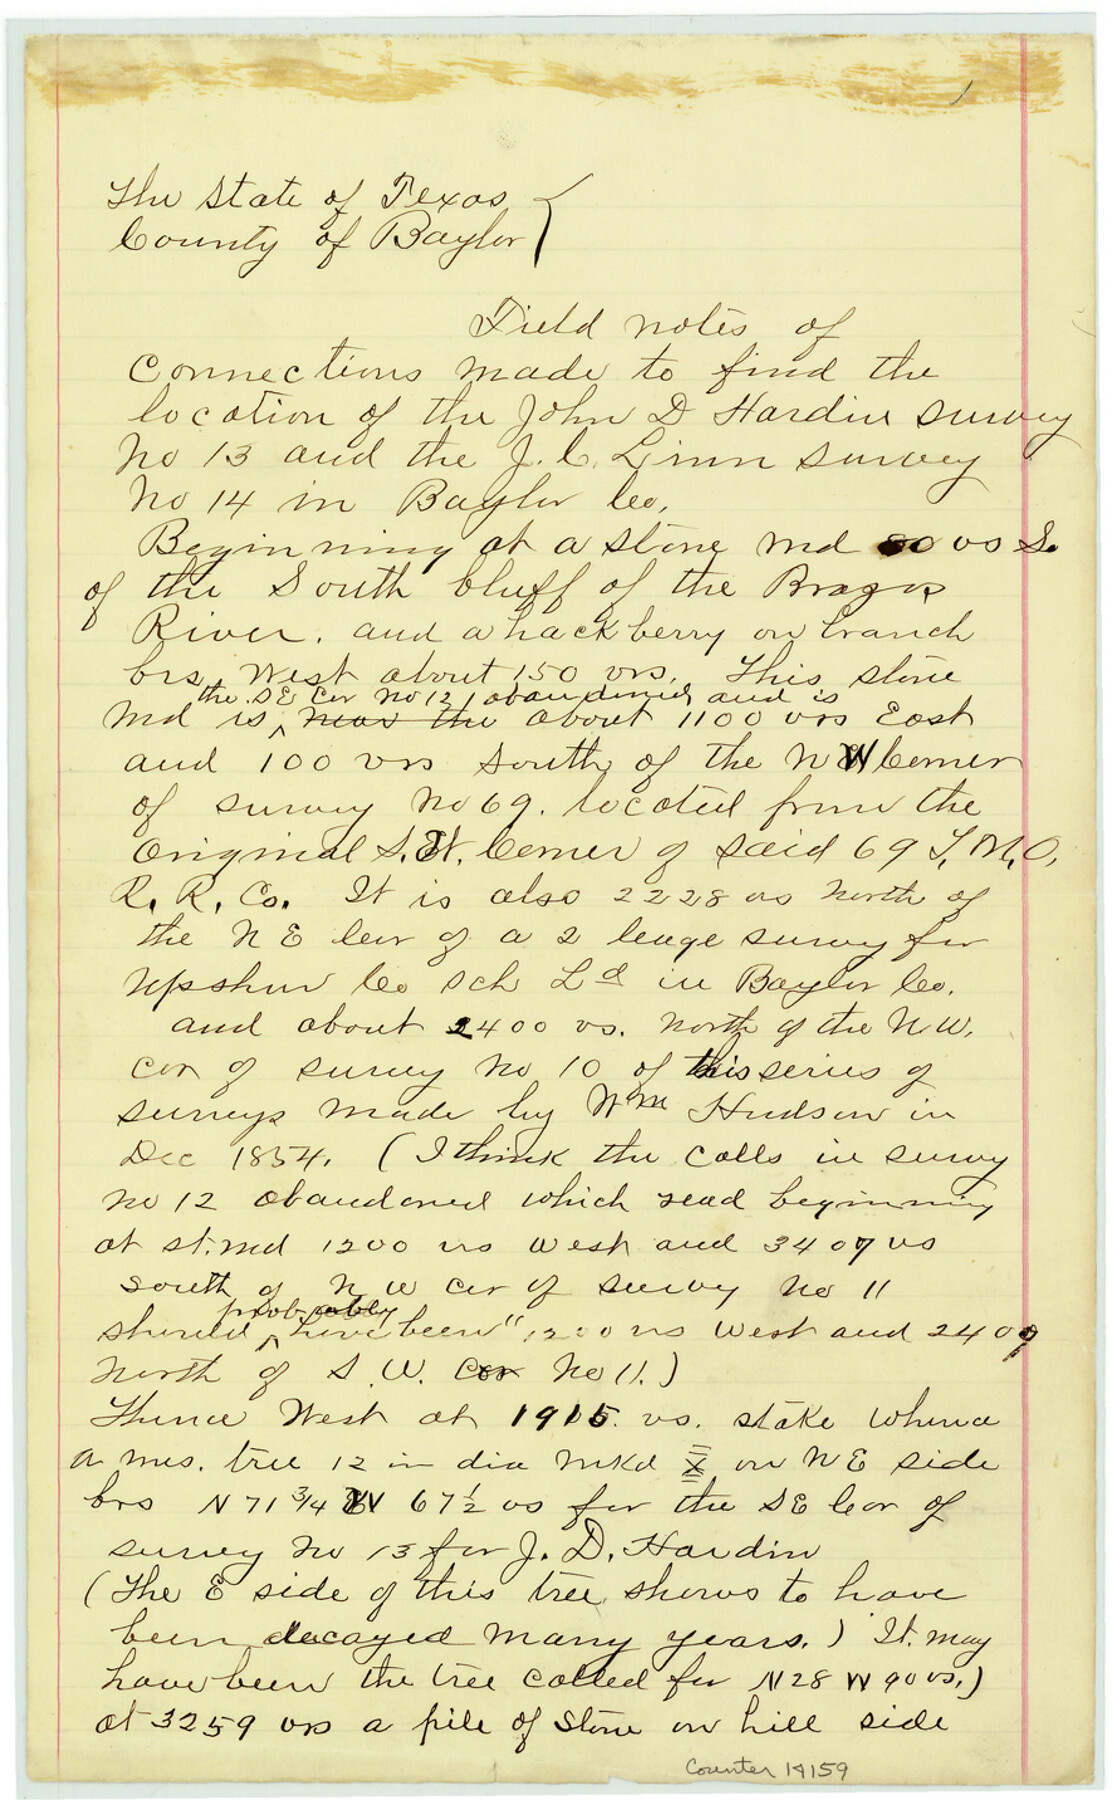 1
The State of Texas
County of Baylor
Field notes of
Connections made to find the
location of the John D Hardin survey
No 13 and the J. C. Linn survey
No 14 in Baylor Co.
Beginning at a stone md 80 vs S.
of the South bluff of the Brazos
River. and a hackberry on branch
brs West about 150 vrs. This stone
the S E Cor No 12, abandoned and is
md is near the about 1100 vrs East
and 100 vrs South of the N W Corner
of survey No 69. located from the
Original S. W. Corner of said 69 T. M. C.
R. R. Co. It is also 2228 vs North of
the N E Cor of a 2 leage survey for
Upshur Co Sch Ld in Baylor Co.
and about 2400 vs. North of the N W.
Cor of survey No 10 of this series of
surveys made by Wm Hudson in
Dec 1854. (I think the calls in survey
No 12 abandoned which read beginning
at st. md 1200 vrs West and 3407 vs
South of N W Cor of survey No 11
probably
should have been " 1200 vrs West and 2409
North of S. W. Cor No 11.)
Thence West at 1915. vs. stake whence
a mes. tree 12 in dia mkd X on N E side
brs N 71 3/4 W 67 1/2 vs for the S E Cor of
survey No 13 for J. D. Hardin
(The E side of this tree shows to have
been decayed many years.) It may
have been the tree called for N 28 W 90 vs.)
at 3259 vrs a pile of Stone on hill side
Counter 14159